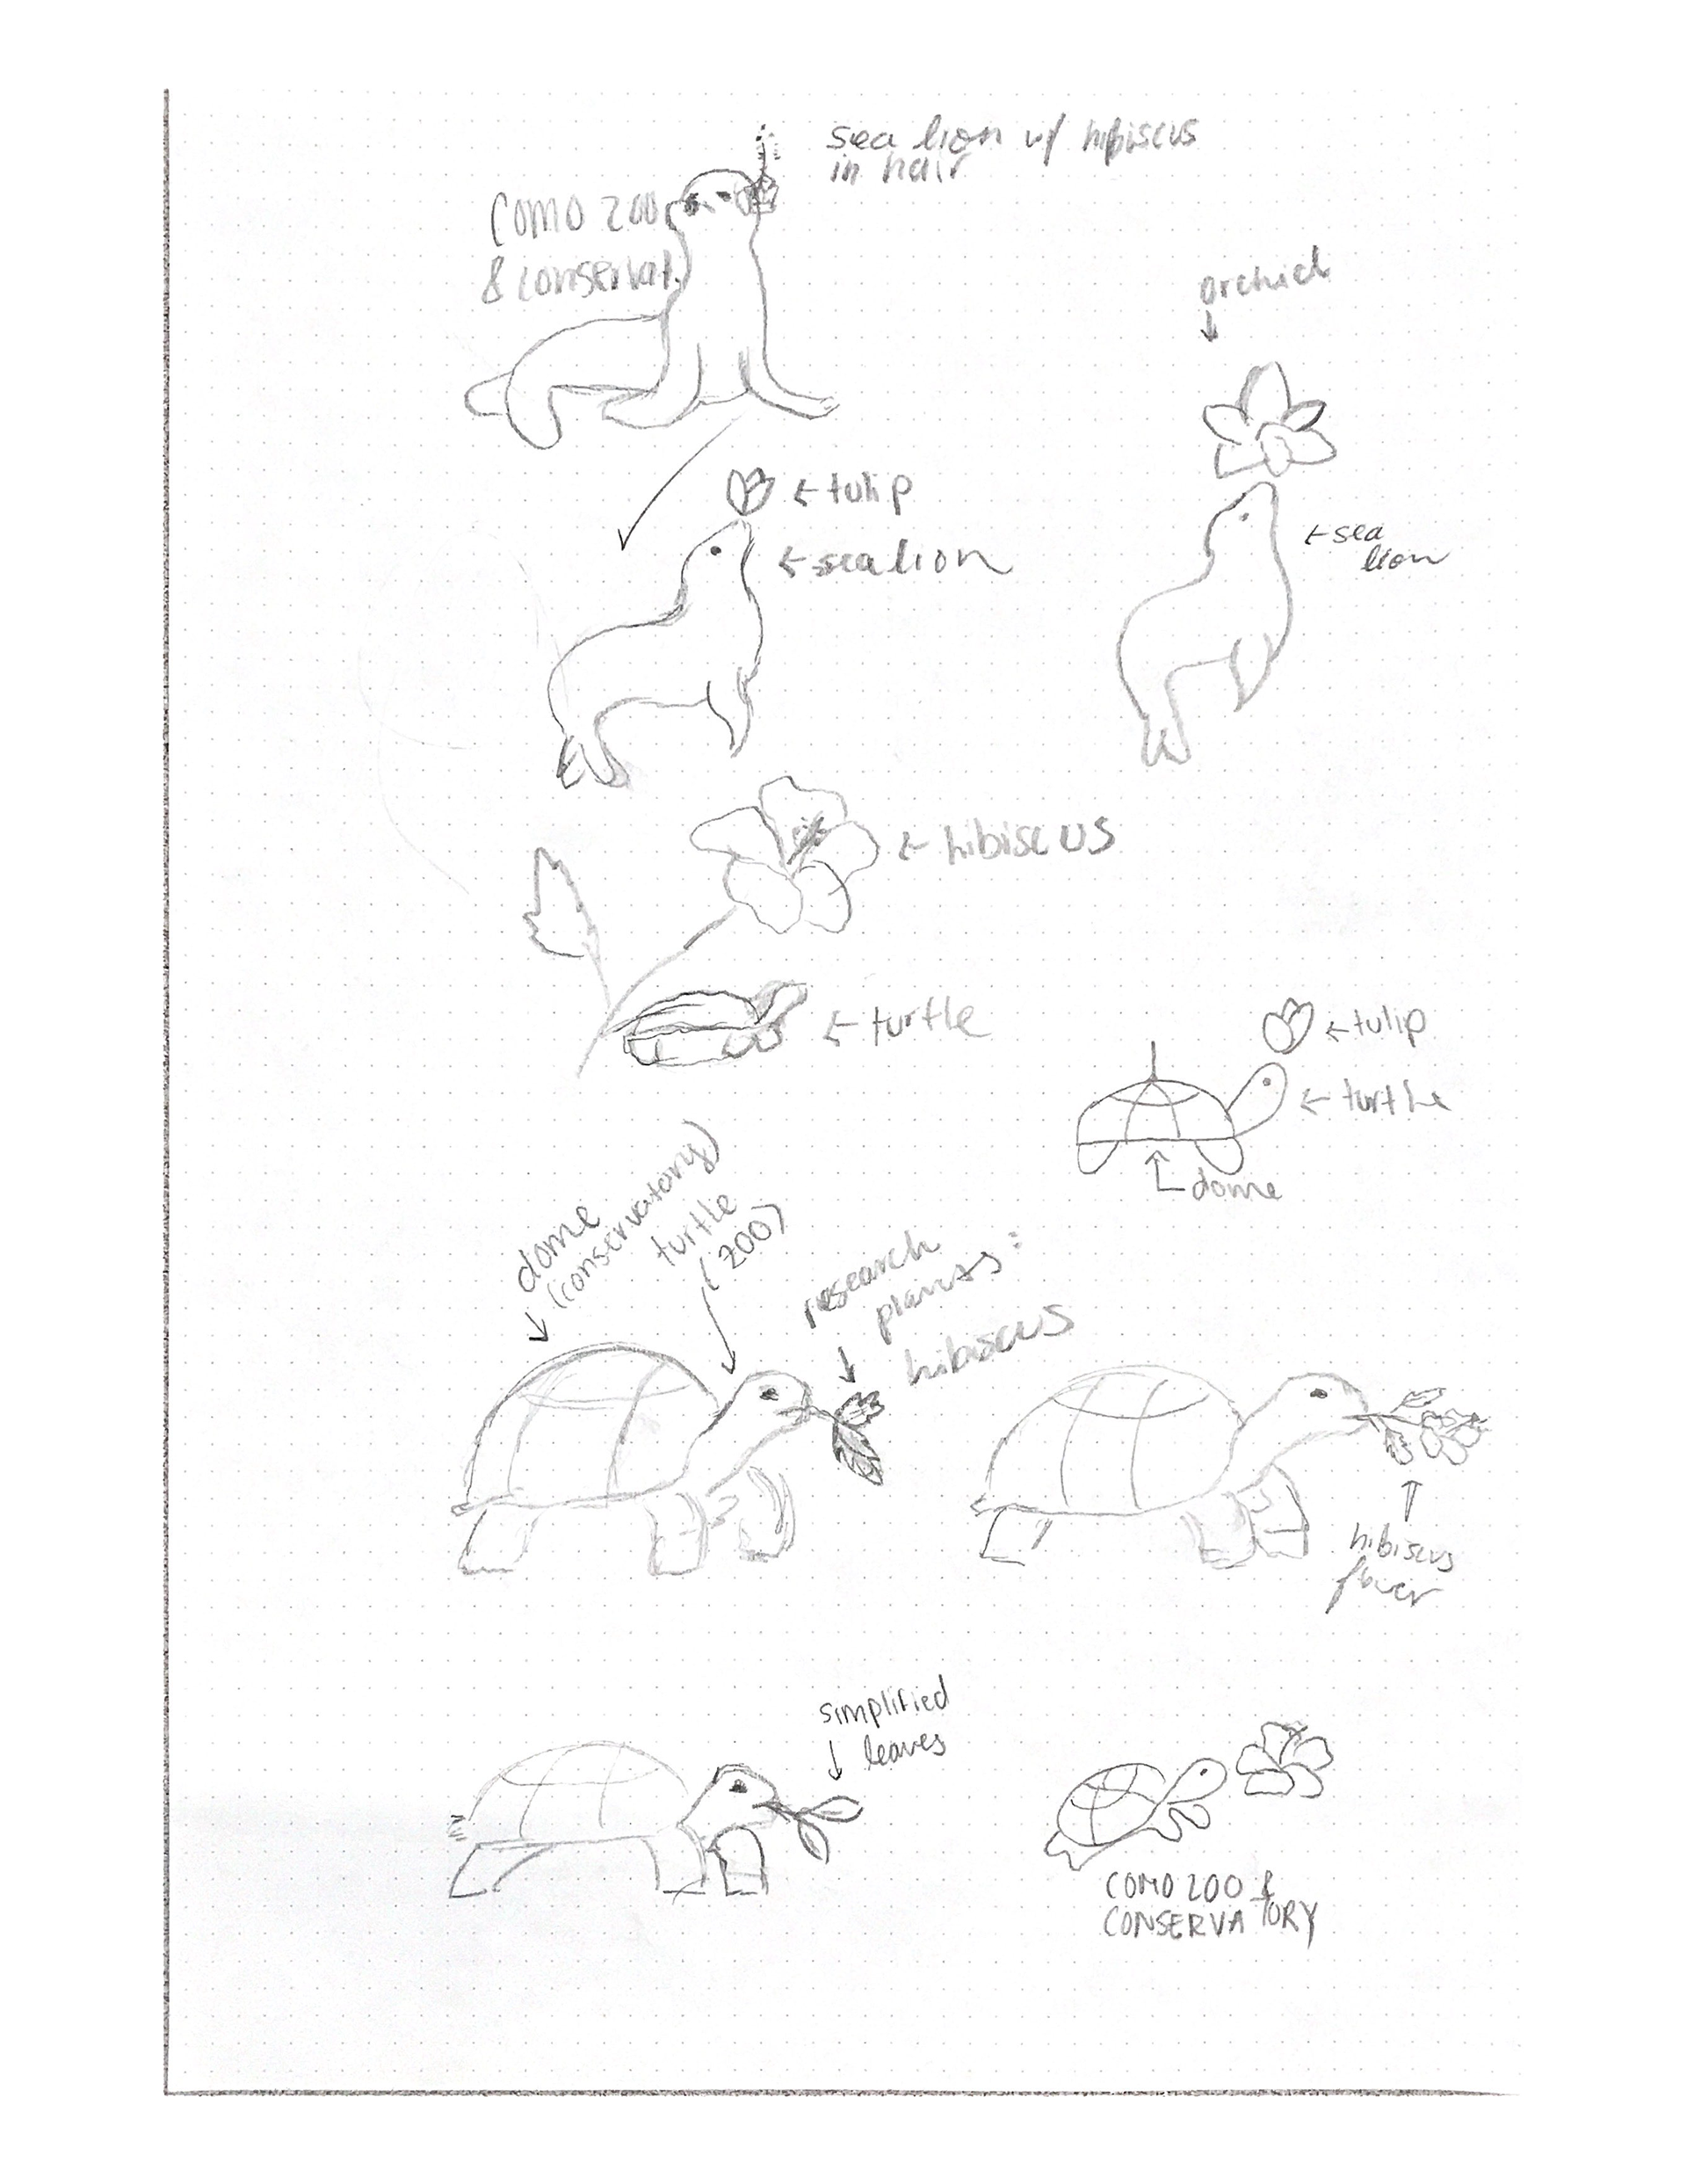 sea lion w/ hibiscus
in hair
COMO ZOO
& conservat.
orchid
tulip
sea lion
sea
lion
hibiscus
turtle
tulip
turtle
dome
dome
(conservatory)
turtle
(zoo)
research
plants:
hibiscus
hibiscus
flower
simplified
leaves
COMO ZOO &
CONSERVATORY